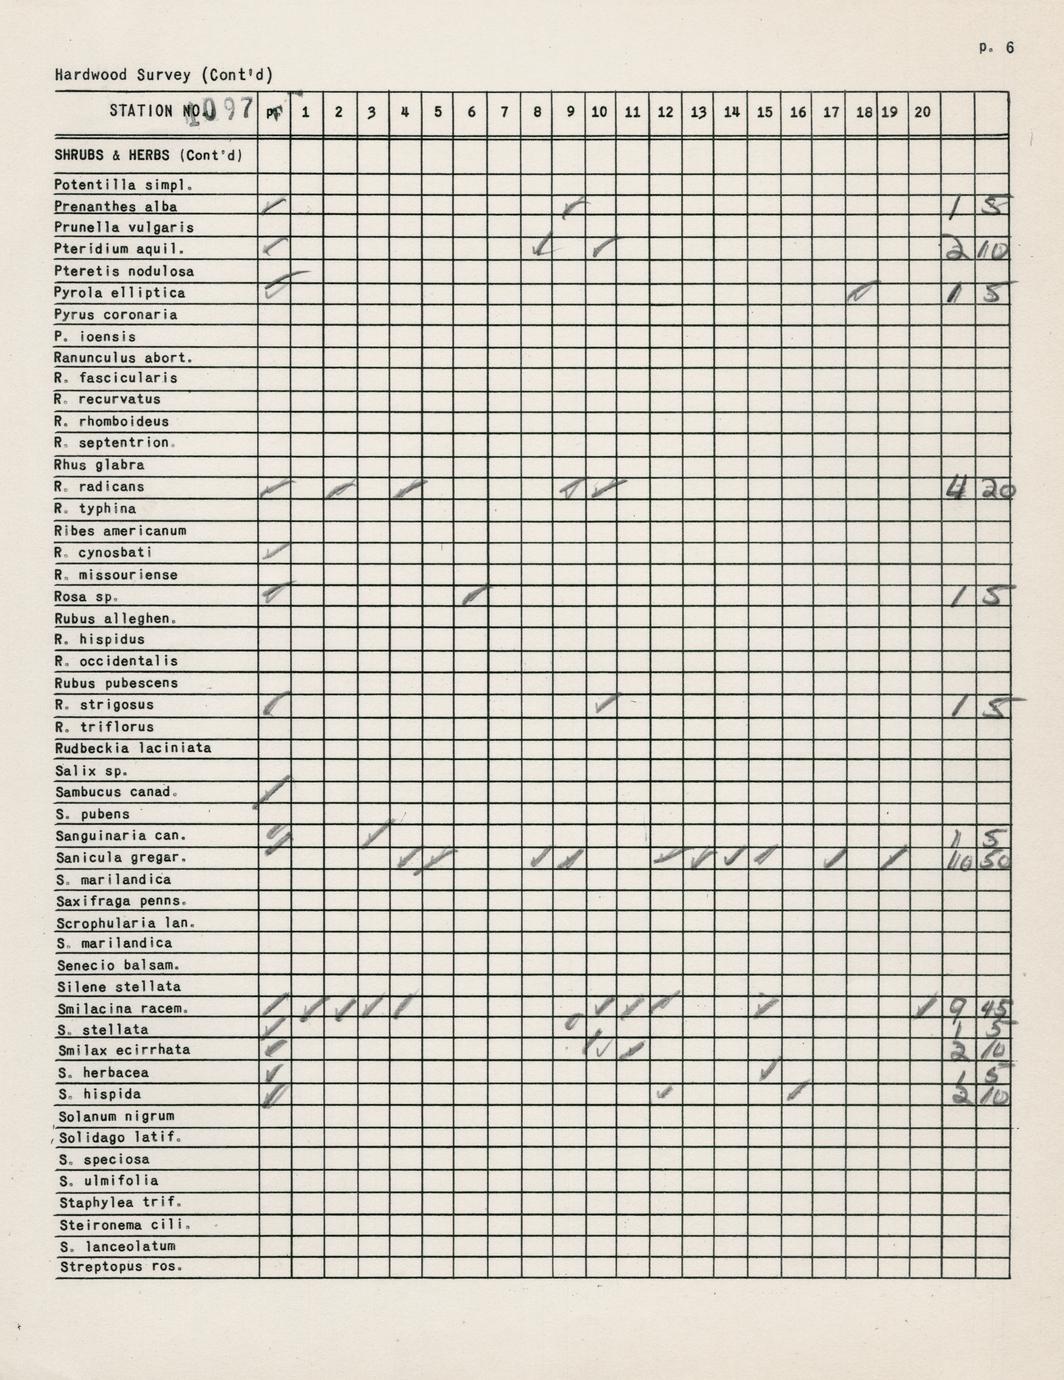 p. 6
Hardwood Survey (Cont'd)
STATION NO. 1097 pr 1 2 3 4 5 6 7 8 9 10 11 12 13 14 15 16 17 18 19 20
SHRUBS & HERBS (Cont'd)
Potentilla simpl.
Prenanthes alba ✓ ✓ 1 5
Prunella vulgaris
Pteridium aquil. ✓ ✓ ✓ 2 10
Pteretis nodulosa
Pyrola elliptica ✓ ✓ 1 5
Pyrus coronaria
P. ioensis
Ranunculus abort.
R. fascicularis
R. recurvatus
R. rhomboideus
R. septentrion.
Rhus glabra
R. radicans ✓ ✓ ✓ ✓ ✓ 4 20
R. typhina
Ribes americanum
R. cynosbati ✓
R. missouriense
Rosa sp. ✓ ✓ 1 5
Rubus alleghen.
R. hispidus
R. occidentalis
Rubus pubescens
R. strigosus ✓ ✓ 1 5
R. triflorus
Rudbeckia laciniata
Salix sp.
Sambucus canad. ✓
S. pubens
Sanguinaria can. ✓ ✓ 1 5
Sanicula gregar. ✓ ✓ ✓ ✓ ✓ ✓ ✓ ✓ ✓ ✓ 10 50
S. marilandica
Saxifraga penns.
Scrophularia lan.
S. marilandica
Senecio balsam.
Silene stellata
Smilacina racem. ✓ ✓ ✓ ✓ ✓ ✓ ✓ ✓ ✓ ✓ 9 45
S. stellata ✓ ✓ 1 5
Smilax ecirrhata ✓ ✓ ✓ 2 10
S. herbacea ✓ ✓ 1 5
S. hispida ✓ ✓ ✓ 2 10
Solanum nigrum
Solidago latif.
S. speciosa
S. ulmifolia
Staphylea trif.
Steironema cili.
S. lanceolatum
Streptopus ros.